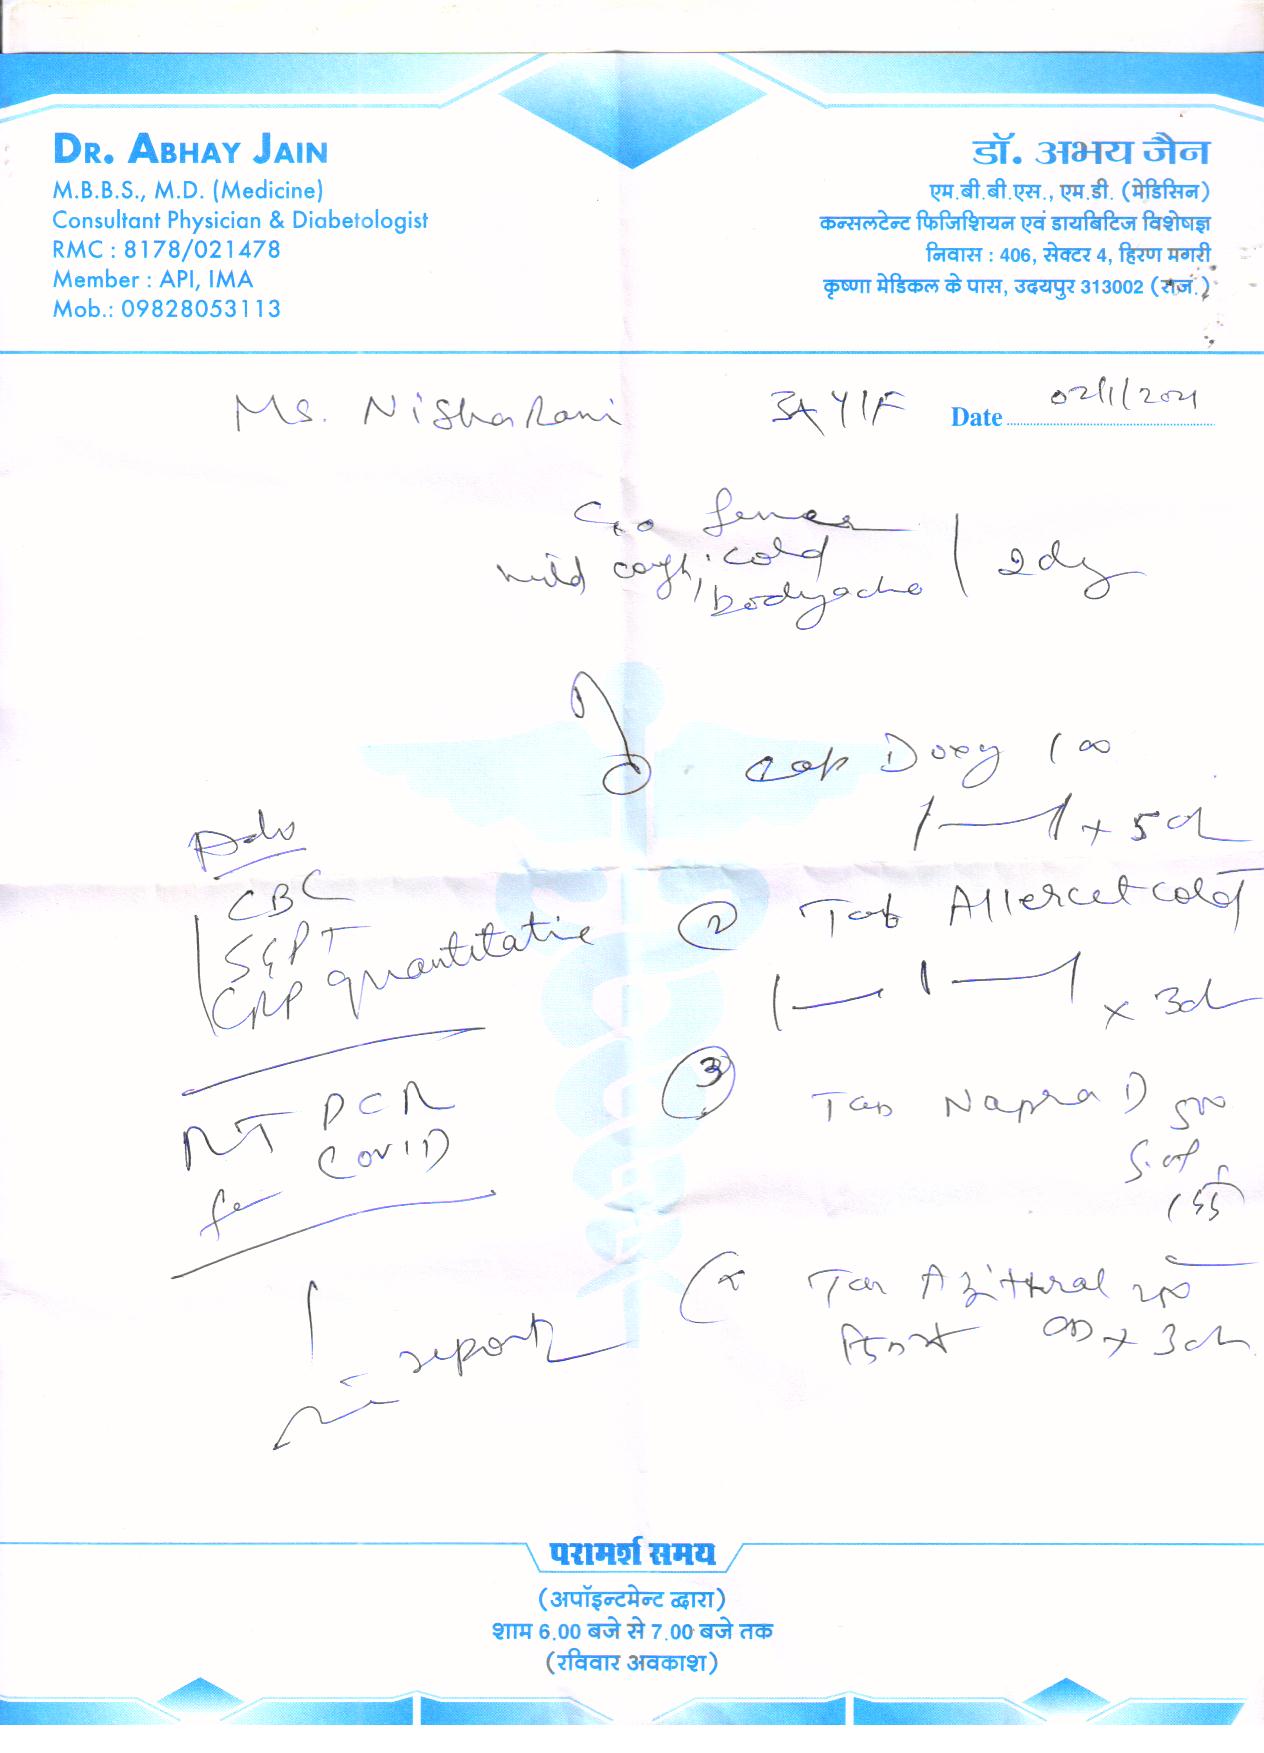 DR. ABHAY JAIN
M.B.B.S., M.D. (Medicine)
Consultant Physician & Diabetologist
RMC : 8178/021478
Member : API, IMA
Mob.: 09828053113
डॉ. अभय जैन
एम.बी.बी.एस., एम.डी. (मेडिसिन)
कन्सलटेन्ट फिजिशियन एवं डायबिटिज विशेषज्ञ
निवास : 406, सेक्टर 4, हिरण मगरी
कृष्णा मेडिकल के पास, उदयपुर 313002 (राज.)
Ms. Nisha Rani Y/F Date 02/1/2021
C/o fever
mild cough, cold
bodyache 2dy
Cap Doxy 100
+ 5d
② Tab Allercet cold
x 3d
③ Tab Napra D 500
Tab Azithral
OD x 3d
Adv
CBC
SGPT
CRP quantitative
RT PCR
for COVID
report
परामर्श समय
(अपॉइन्टमेन्ट द्वारा)
शाम 6.00 बजे से 7.00 बजे तक
(रविवार अवकाश)